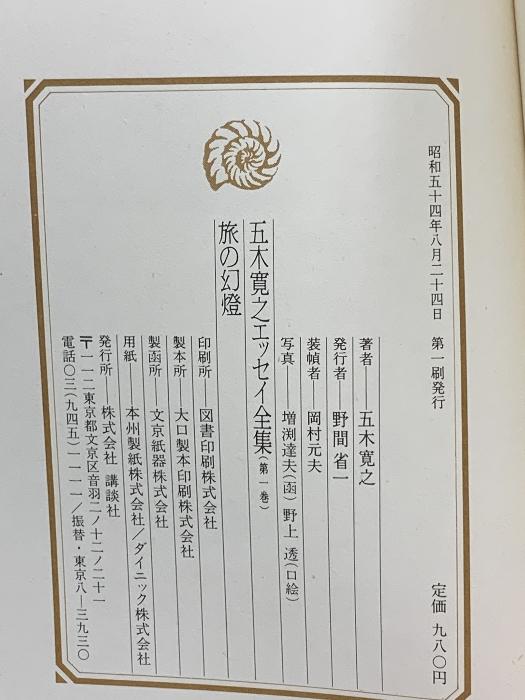 昭和五十四年八月二十四日　第一刷発行
定価　九八〇円
著者──五木寛之
発行者──野間省一
装幀者──岡村元夫
写真──増渕達夫（函）野上　透（口絵）
五木寛之エッセイ全集（第一巻）
旅の幻燈
印刷所──図書印刷株式会社
製本所──大口製本印刷株式会社
製函所──文京紙器株式会社
用紙──本州製紙株式会社／ダイニック株式会社
発行所──株式会社　講談社
〒一一二東京都文京区音羽二ノ十二ノ二十一
電話〇三（九四五）一一一一／振替・東京八―三九三〇